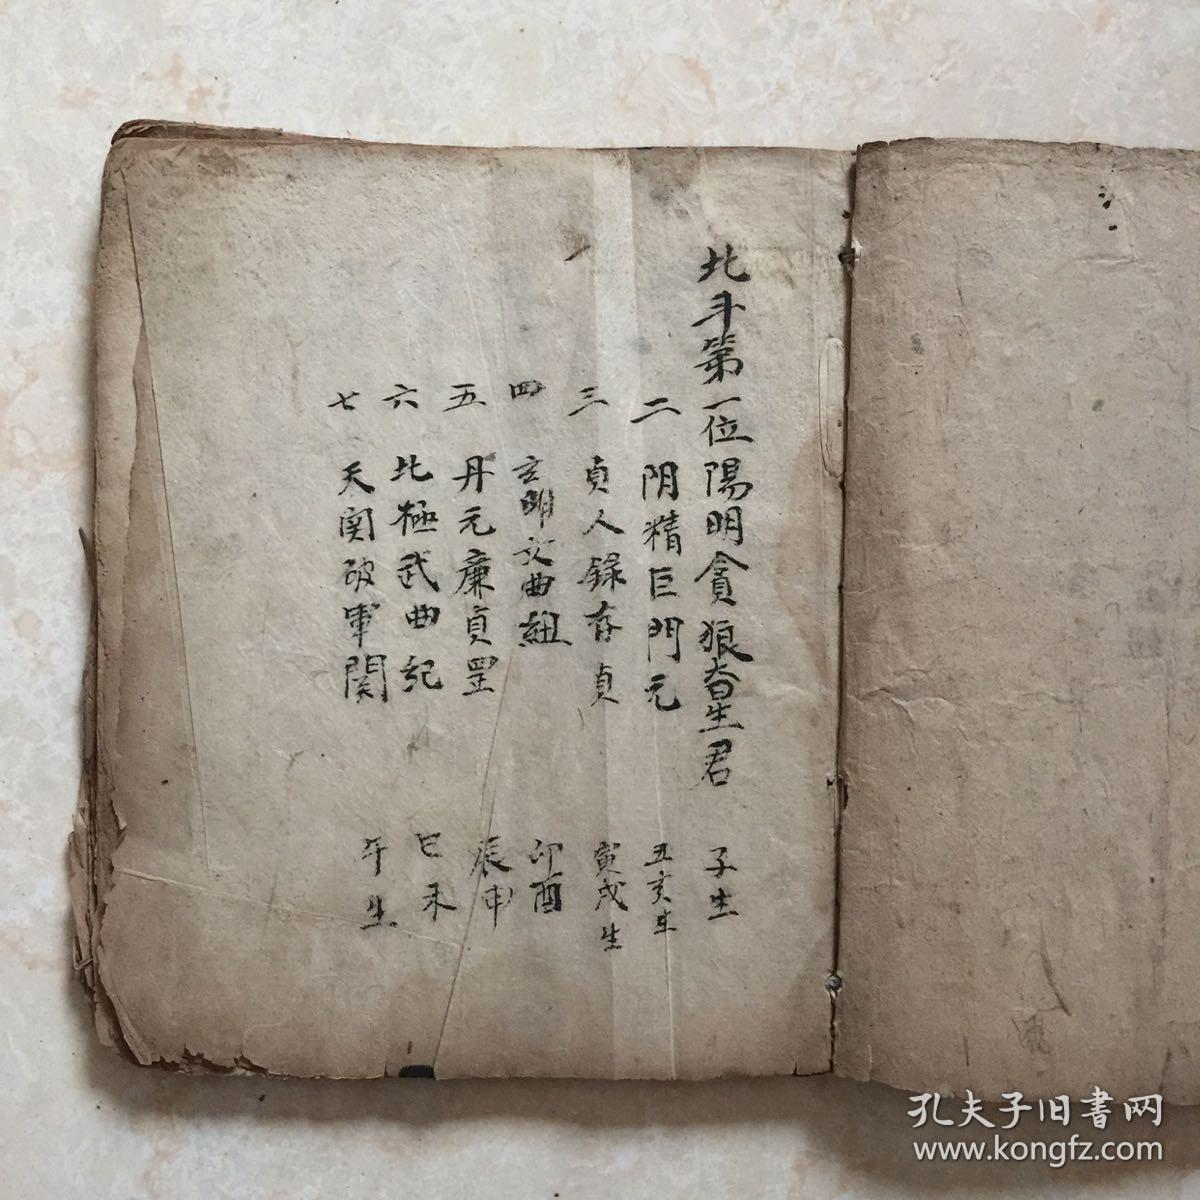 北斗第一位陽明貪狼畣生君 子生
二 阴精巨門元 丑亥生
三 貞人録存貞 寅戍生
四 玄明文曲紐 卯酉
五 丹元廉貞罡 辰申
六 北極武曲紀 巳未
七 天関破軍関 午生
孔夫子旧書网
www.kongfz.com